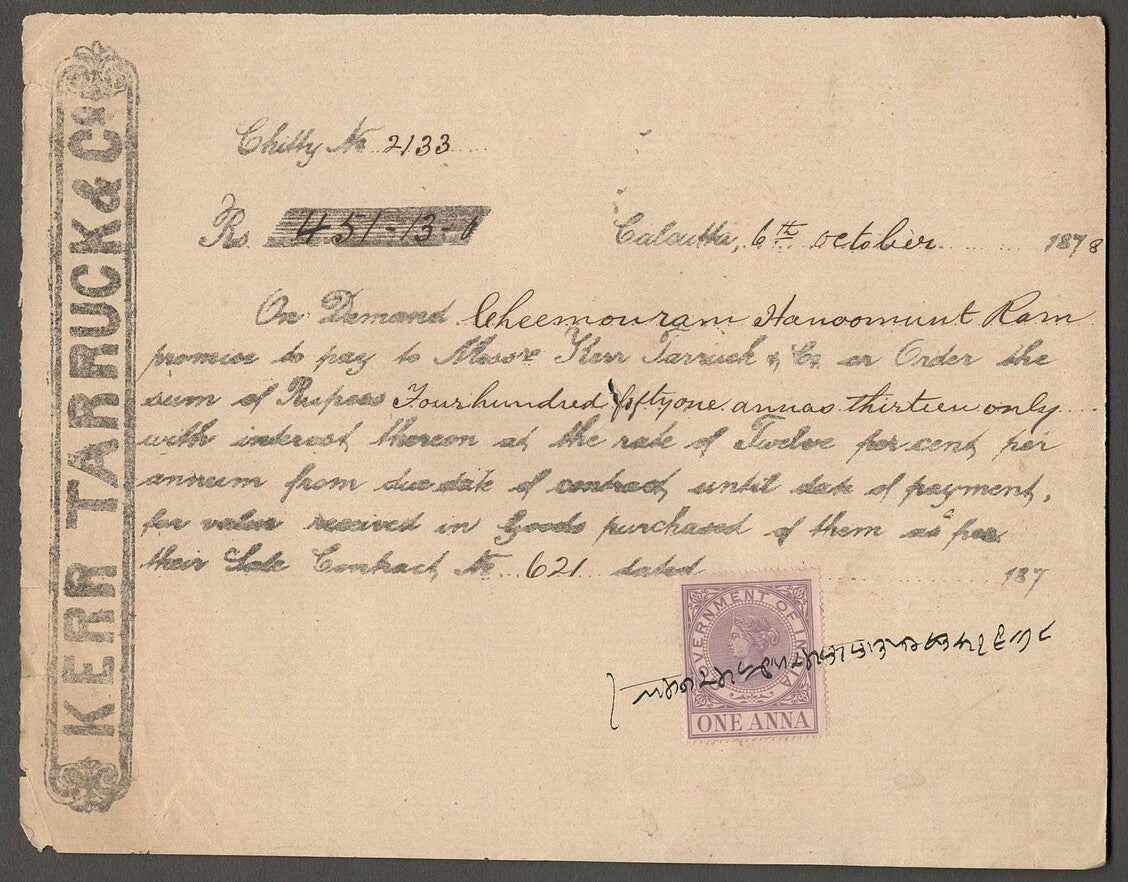 KERR TARRUCK & Co
Chitty No 2133
Rs 451-13-
Calcutta, 6th october 1878
On Demand Cheemouram Hanoomunt Ram
promise to pay to Messrs Kerr Tarruck & Co or Order the
sum of Rupees Four hundred fifty one annas thirteen only
with interest thereon at the rate of Twelve per cent, per
annum from due date of contract, until date of payment,
for value received in Goods purchased of them as per
their Sale Contract, No 621 dated 187
GOVERNMENT OF INDIA
ONE ANNA